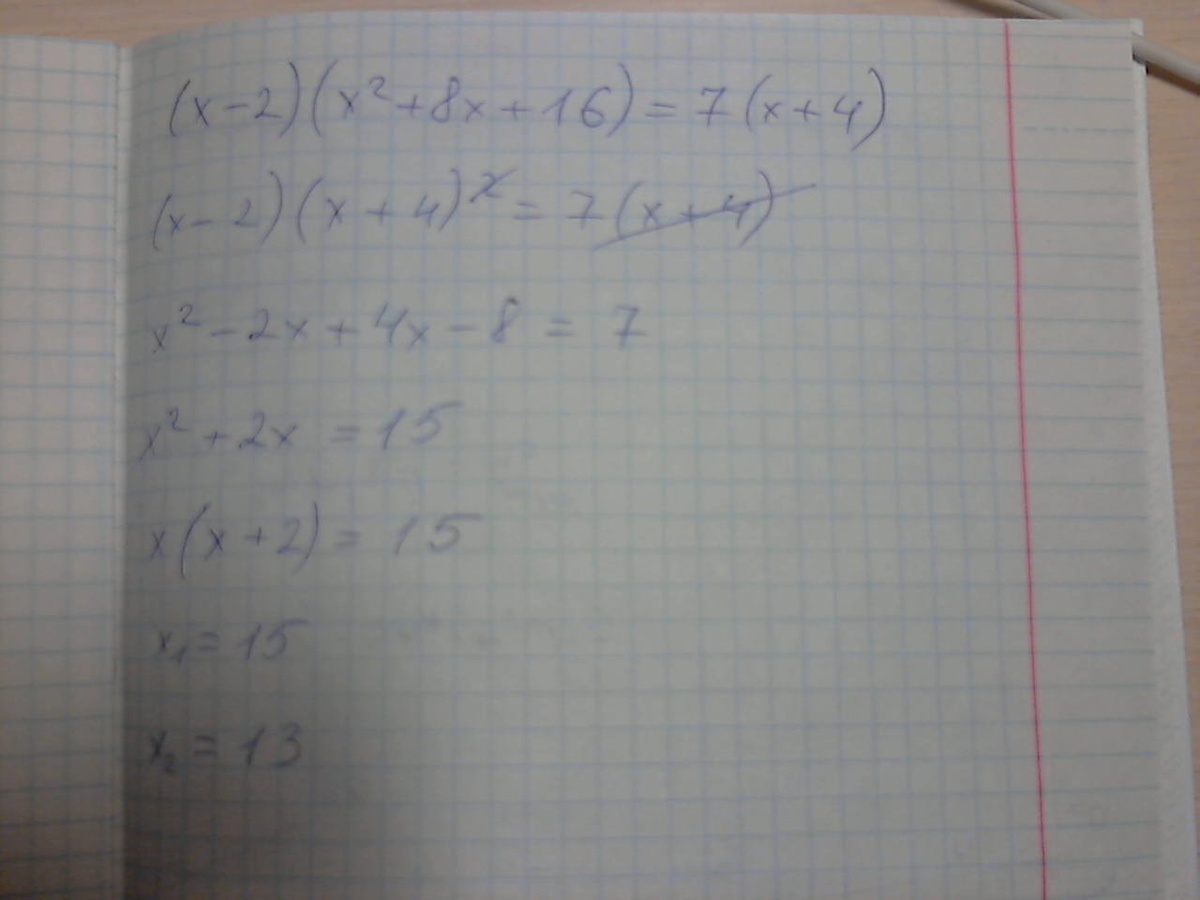 (x-2)(x²+8x+16)=7(x+4)
(x-2)(x+4)²=7(x+4)
x²-2x+4x-8=7
x²+2x=15
x(x+2)=15
x₁=15
x₂=13